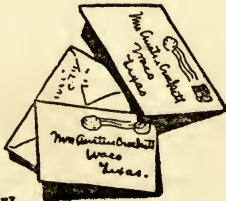 Mrs Austin Crockett
Waco
Texas
Mrs Austin Crockett
Waco
Texas.